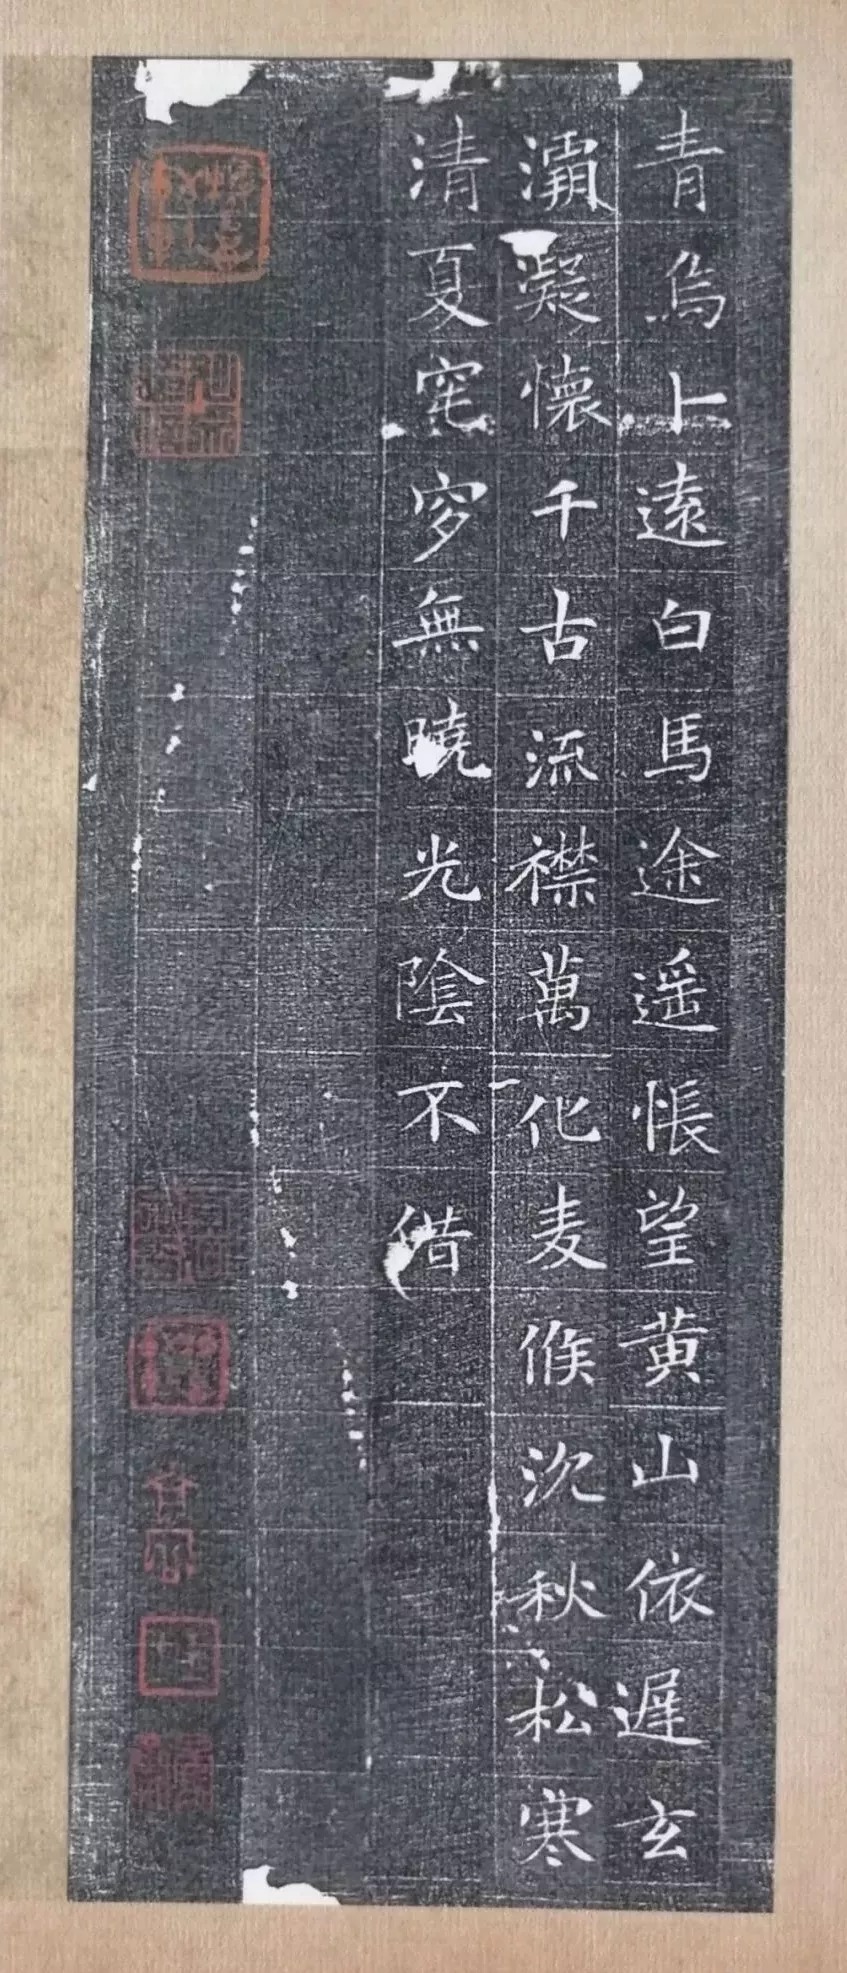 青烏卜遠白馬途遥悵望黄山依遲玄
灞凝懷千古流襟萬化麦候沉秋松寒
清夏窀穸無曉光陰不借